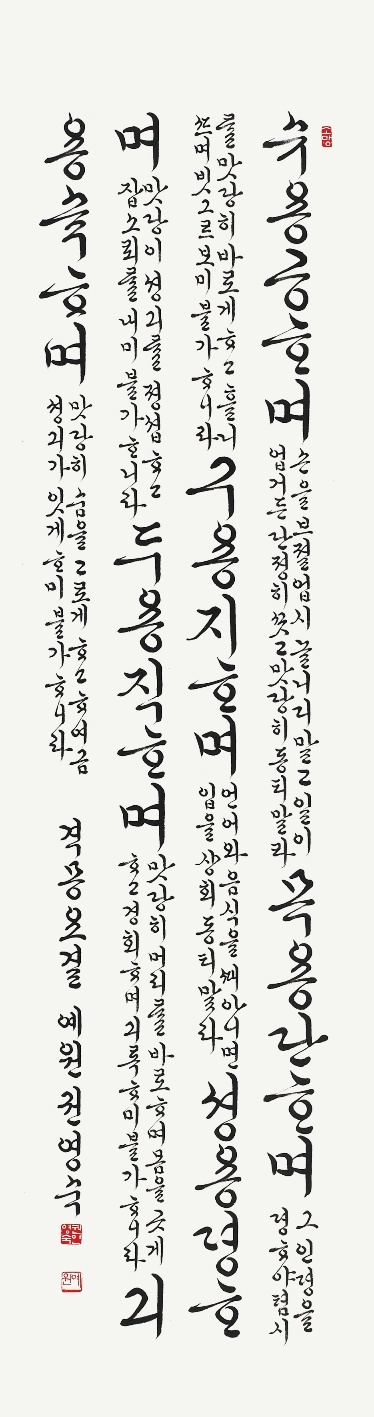 수용공ᄒᆞ며
손을 브졀업시 놀니디 말고 일이
업거든 단졍히 ᄭᅩᆺ고 맛당히 동티 말라
목용단ᄒᆞ며
그 안졍을
뎡ᄒᆞ야 텸시
를 맛당히 바로게 ᄒᆞ고 흘니
ᄯᅳ며 빗그르 보미 불가ᄒᆞ니라
구용지ᄒᆞ며
언어와 음식을 ᄯᅢ 아니면
입을 상회 동티 말라
셩용졍ᄒᆞ
며
맛당이 셩긔를 졍졉ᄒᆞ고
잡소ᄅᆡ를 내미 불가ᄒᆞ니라
두용직ᄒᆞ며
맛당히 머리를 바로ᄒᆞ며 몸을 곳게
ᄒᆞ고 경회ᄒᆞ며 긔록ᄒᆞ미 불가ᄒᆞ니라
긔
용숙ᄒᆞ며
맛당히 숨을 고로게 ᄒᆞ고 ᄒᆞ여금
셩긔가 잇게 ᄒᆞ미 불가ᄒᆞ니라
격몽요결 예원 권영수